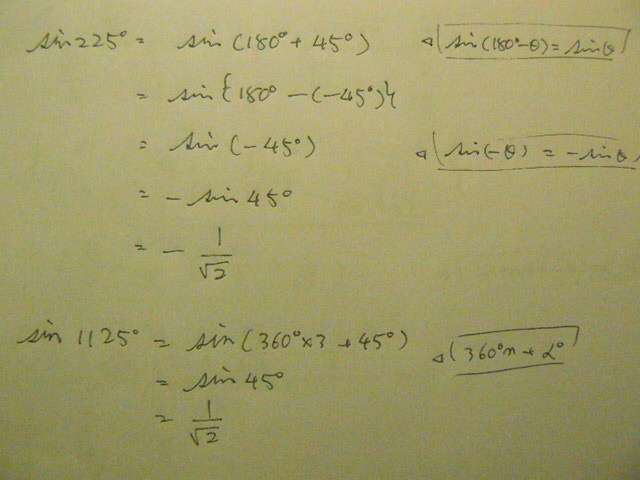 sin225° = sin(180°+45°) ◁ sin(180°-θ)=sinθ
= sin{180°-(-45°)}
= sin(-45°) ◁ sin(-θ) = -sinθ
= -sin45°
= - 1/√2
sin 1125° = sin(360°×3+45°) ◁ 360°n+α°
= sin45°
= 1/√2